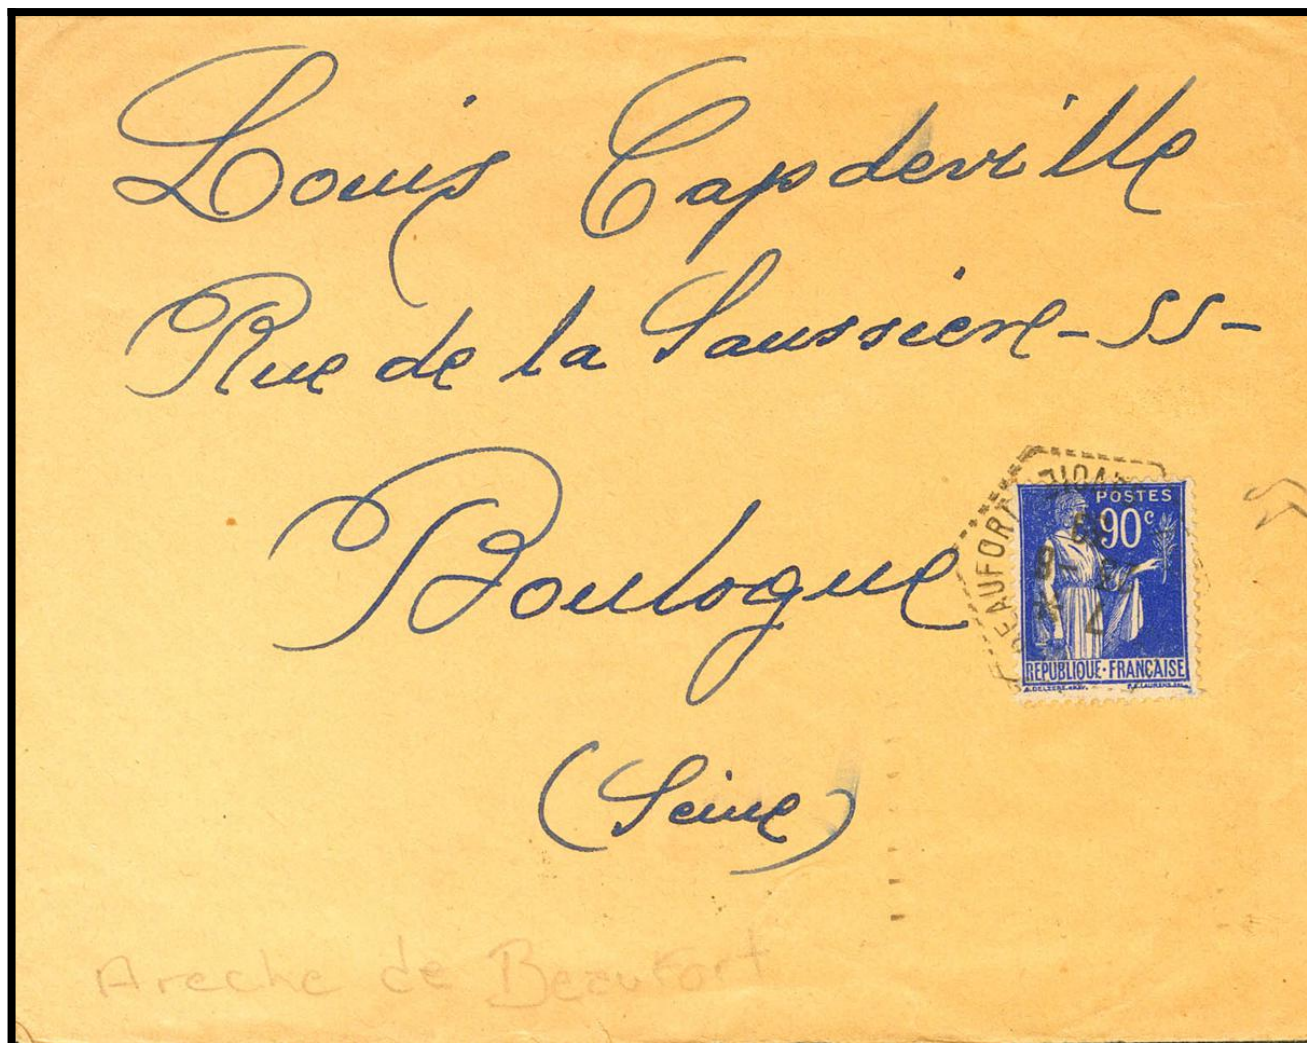 Louis Capdeville
Rue de la Saussiere - 55 -
Boulogne
(Seine)
BEAUFORT
POSTES
90c
REPUBLIQUE·FRANÇAISE
Areche de Beaufort